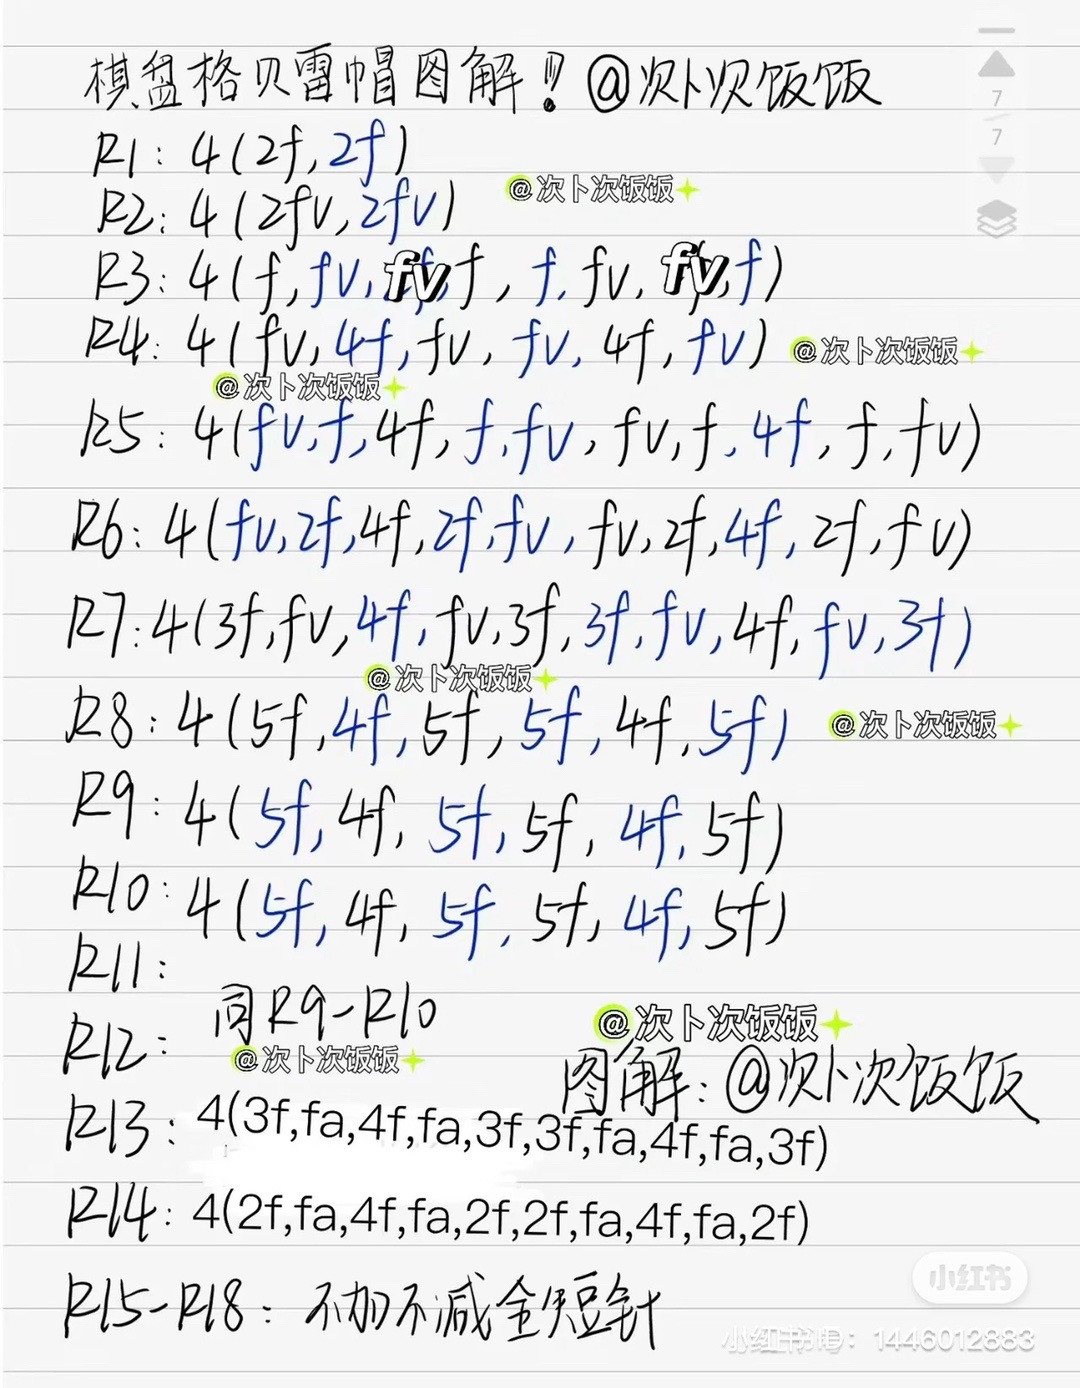 棋盘格贝雷帽图解! @次卜次饭饭
7
7
R1: 4(2f,2f)
@次卜次饭饭
R2: 4(2fv,2fv)
R3: 4(f,fv,fv,f,f,fv,fv,f)
R4: 4(fv,4f,fv,fv,4f,fv)
@次卜次饭饭
@次卜次饭饭
R5: 4(fv,f,4f,f,fv,fv,f,4f,f,fv)
R6: 4(fv,2f,4f,2f,fv,fv,2f,4f,2f,fv)
R7: 4(3f,fv,4f,fv,3f,3f,fv,4f,fv,3f)
@次卜次饭饭
R8: 4(5f,4f,5f,5f,4f,5f)
@次卜次饭饭
R9: 4(5f,4f,5f,5f,4f,5f)
R10: 4(5f,4f,5f,5f,4f,5f)
R11:
同R9-R10
R12:
@次卜次饭饭
@次卜次饭饭
图解: @次卜次饭饭
R13: 4(3f,fa,4f,fa,3f,3f,fa,4f,fa,3f)
R14: 4(2f,fa,4f,fa,2f,2f,fa,4f,fa,2f)
R15-R18: 不加不减全短针
小红书
小红书号: 1446012883